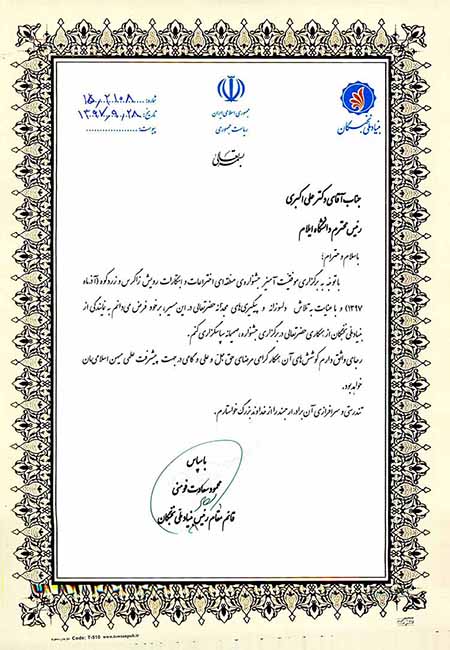 بنیاد ملی نخبگان
جمهوری اسلامی ایران
ریاست جمهوری
شماره: ۱۵/۲۱۰۸
تاریخ: ۱۳۹۷/۹/۲۸
پیوست:
بسمه تعالی
جناب آقای دکتر علی اکبری
رئیس محترم دانشگاه ایلام
با سلام و احترام؛
با توجه به برگزاری موفقیت آمیز جشنواره‌ی منطقه‌ای اختراعات و ابتکارات رویش زاگرس و زردکوه (آذرماه
۱۳۹۷) و با عنایت به تلاش دلسوزانه و پیگیری‌های مجدانه حضرتعالی در این مسیر، بر خود فرض می‌دانم به نمایندگی از
بنیاد ملی نخبگان از همکاری حضرتعالی در برگزاری جشنواره، صمیمانه سپاسگزاری کنم.
رجای واثق دارم کوشش‌های آن همکار گرامی مرضای حق جل و علی و گامی در جهت پیشرفت علمی میهن اسلامی‌مان
خواهد بود.
تندرستی و سرافرازی آن برادر ارجمند را از خداوند بزرگ خواستارم.
با سپاس
محمود سعادت فومنی
قائم مقام رئیس بنیاد ملی نخبگان
Code: T-510 www.